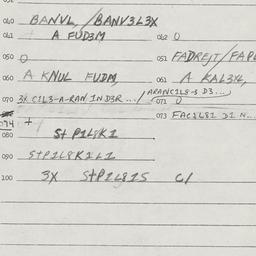 040 BANVL / BANV3L3X
041 A FUD3M 042 0
050 0 051 FADREJT / FAPL
060 A KNUL FUDM, 061 A KAL3X,
070 3X C1L3-A-RAN 1ND3R .../ ARANC1L8-3 D3...
071 0
073 FAC1L81 D1 N...
074 +
080 StP1L8K1
090 StP1L8K1L1
100 3X StP1L81S C/